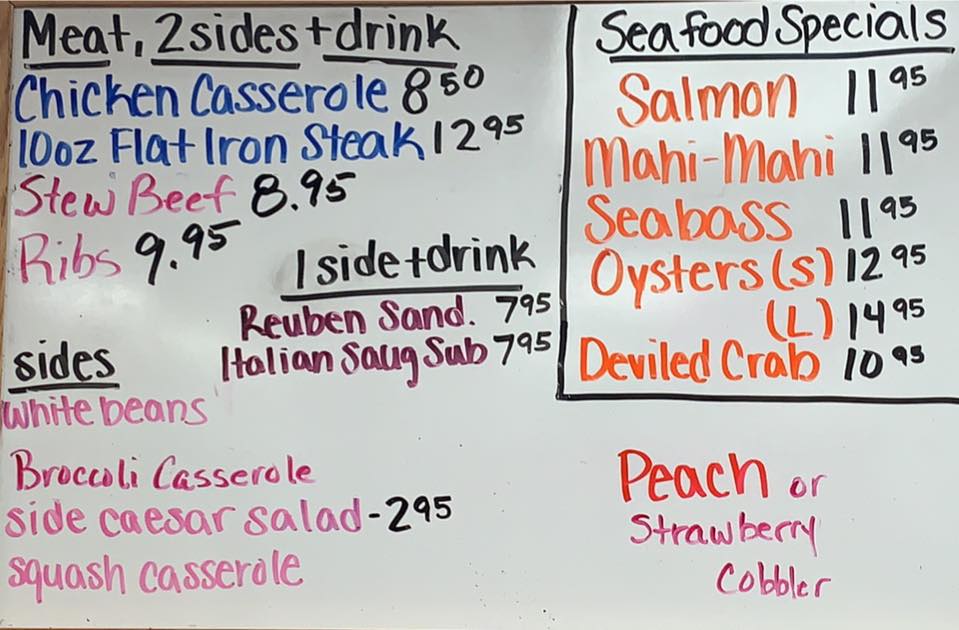 Meat, 2 sides + drink
Chicken Casserole 8 50
10oz Flat Iron Steak 12 95
Stew Beef 8.95
Ribs 9.95
1 side + drink
Reuben Sand. 7 95
Italian Saug Sub 7 95
sides
white beans
Broccoli Casserole
side caesar salad - 2 95
squash casserole
Seafood Specials
Salmon 11 95
Mahi-Mahi 11 95
Seabass 11 95
Oysters (s) 12 95
(L) 14 95
Deviled Crab 10 95
Peach or
Strawberry
Cobbler